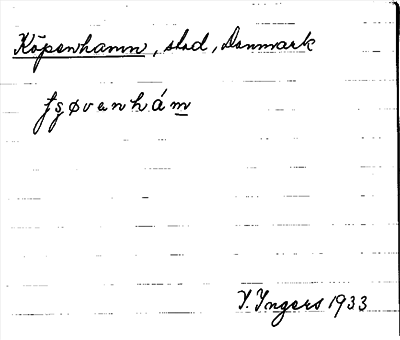 Köpenhamn, stad, Danmark
fşøvanhám
I. Ingers 1933